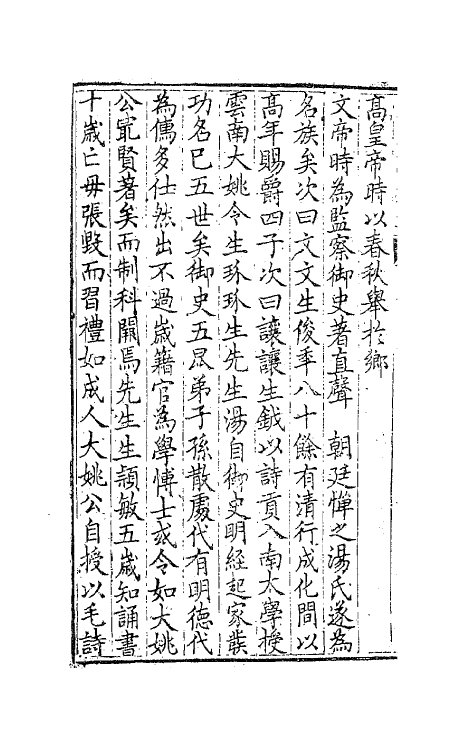 高皇帝時以春秋舉扵鄉
文帝時為監察御史著直聲　朝廷憚之湯氏遂為
名族矣次曰文文生俊年八十餘有清行成化間以
髙年賜爵四子次曰讓讓生鉞以詩貢入南太學授
雲南大姚令生珎珎生先生湯自御史明經起家裝
功名已五世矣御史五昆弟子孫散處代有明德代
為儒多仕然出不過歲籍官為學愽士或令如大姚
公寔賢著矣而制科開焉先生生頴敏五歲知誦書
十歲亡毋張毀而習禮如成人大姚公自授以毛詩